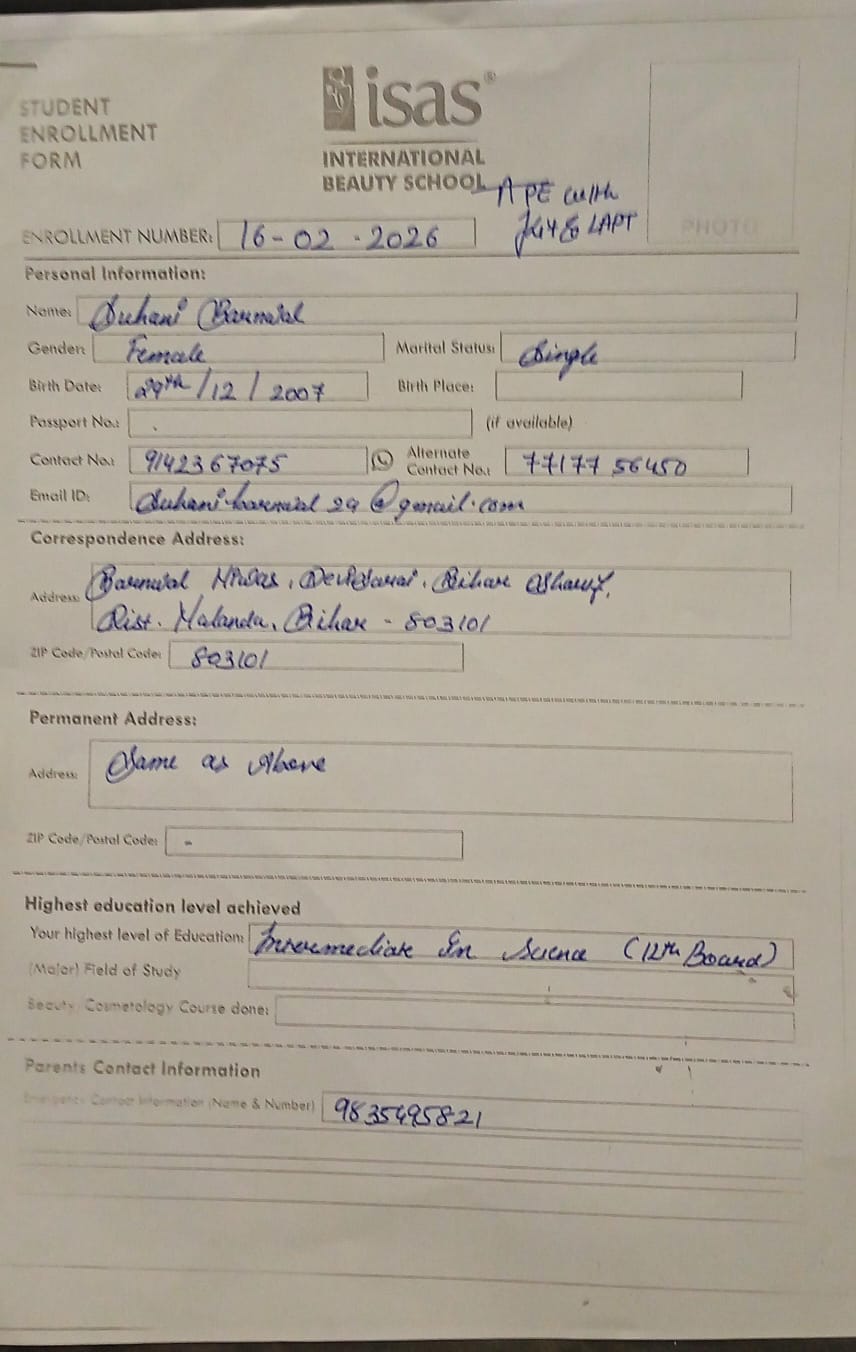 STUDENT
ENROLLMENT
FORM
isas®
INTERNATIONAL
BEAUTY SCHOOL
APE with
LAPT
PHOTO
ENROLLMENT NUMBER: 16-02-2026
Personal Information:
Name: Suhani Barnwal
Gender: Female Marital Status: Single
Birth Date: 29th/12/2007 Birth Place:
Passport No.: (if available)
Contact No.: 9142367075 Alternate Contact No.: 7717756450
Email ID: Suhani.barnwal29@gmail.com
Correspondence Address:
Address: Barnwal Niwas, Devisarai, Bihar Sharif,
Dist. Nalanda, Bihar - 803101
ZIP Code/Postal Code: 803101
Permanent Address:
Address: Same as Above
ZIP Code/Postal Code: -
Highest education level achieved
Your highest level of Education: Intermediate In Science (12th Board)
(Major) Field of Study
Beauty/Cosmetology Course done:
Parents Contact Information
Emergency Contact Information (Name & Number) 9835495821